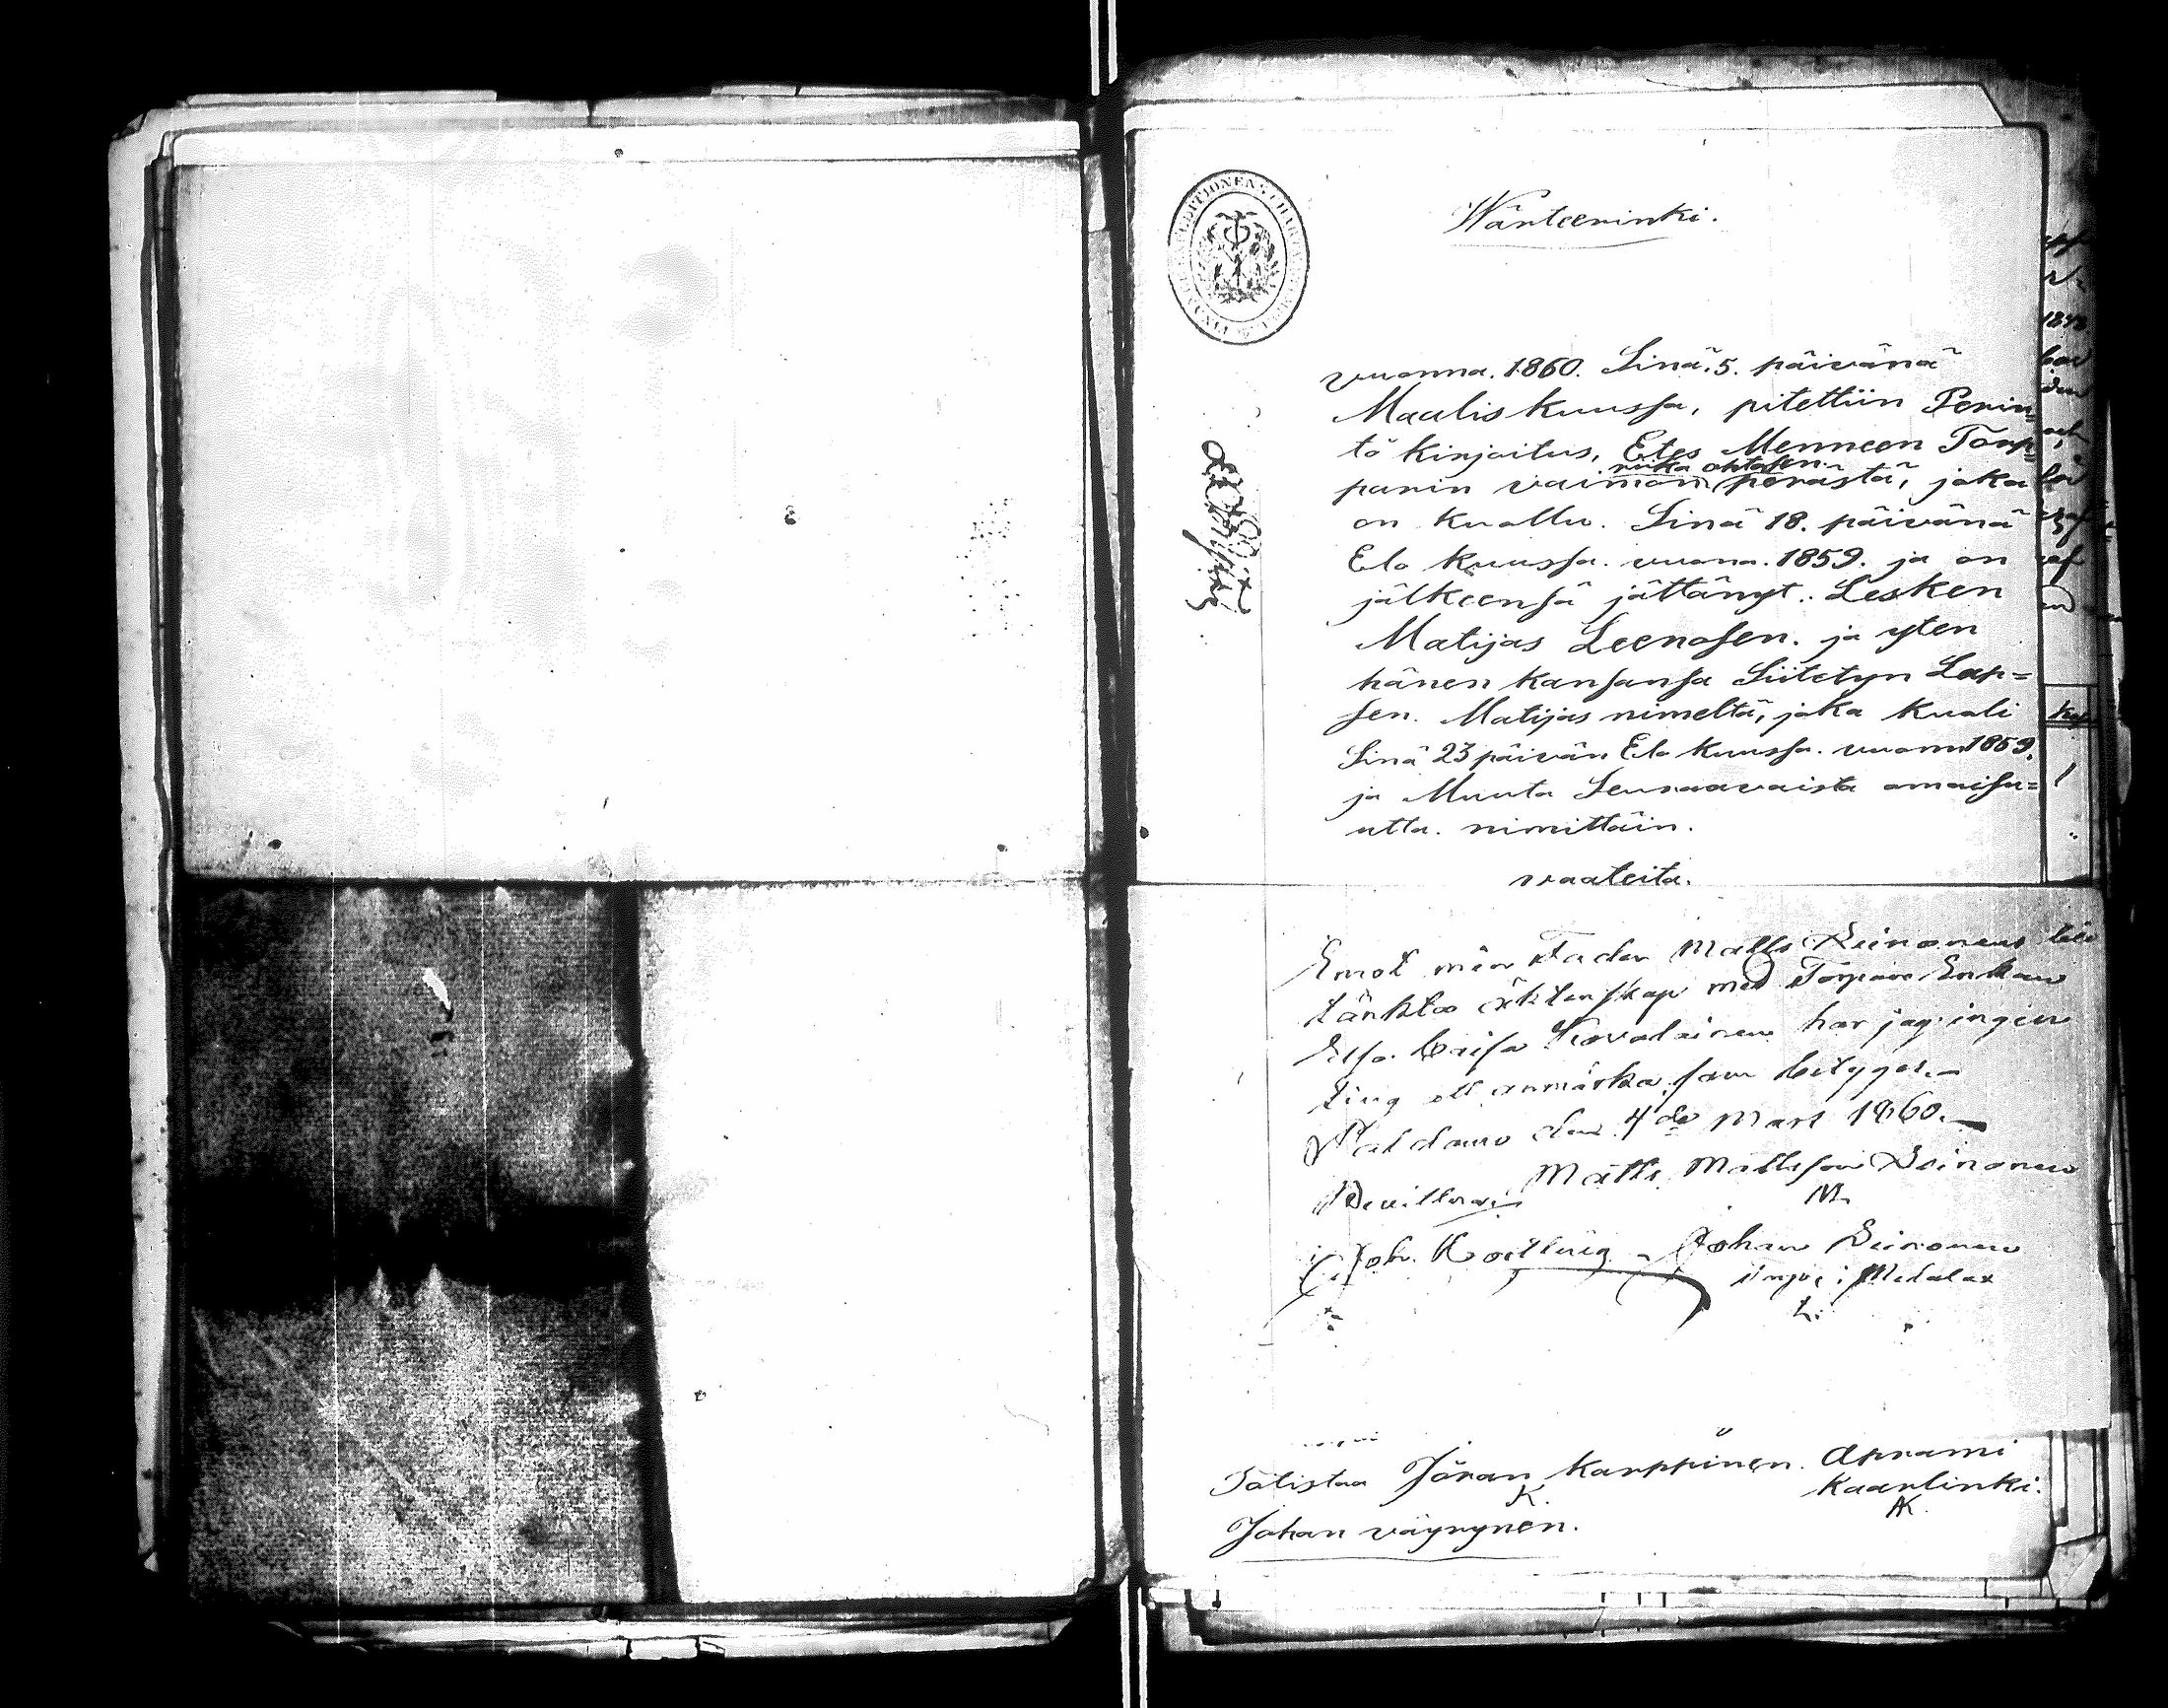 Wärteerinki.
vuonna. 1860. Sinä. 5. päivänä
Maaliskuussa, pitettiin Perin=
tö kirjoitus, Etes Menneen Torp=
riika ohtosen
parin vaimon perästä, joka
on kuollu. Sinä 18. päivänä
Elo kuussa. vuona. 1859. ja on
jälkeensä jättänyt. Lesken
Matijas Leenosen. ja yten
hänen kansansa Siitetyn Lap=
sen. Matijas nimeltä, joka kuoli
Sinä 23 päivän Elo kuussa. vuonn 1859.
ja Muuta Seuraavaista omaisu=
utta. nimittäin.
vaateita.
Emot min Fader Matts Leinonens till
tänkta äktenskap med Torpare Enkan
Elsa Caisa Kovalainen har jag ingen
ting att anmärka som betygas.—
Paldamo den 4de Mars 1860.—
Matts Mattsson Leinonen
M.
Bevittnas
Joh. Johan Leinonen
Medalax
L.
Totistaa Jöran Karppinen. Aprami
K. Kaarlinki.
AK.
Johan väyrynen.